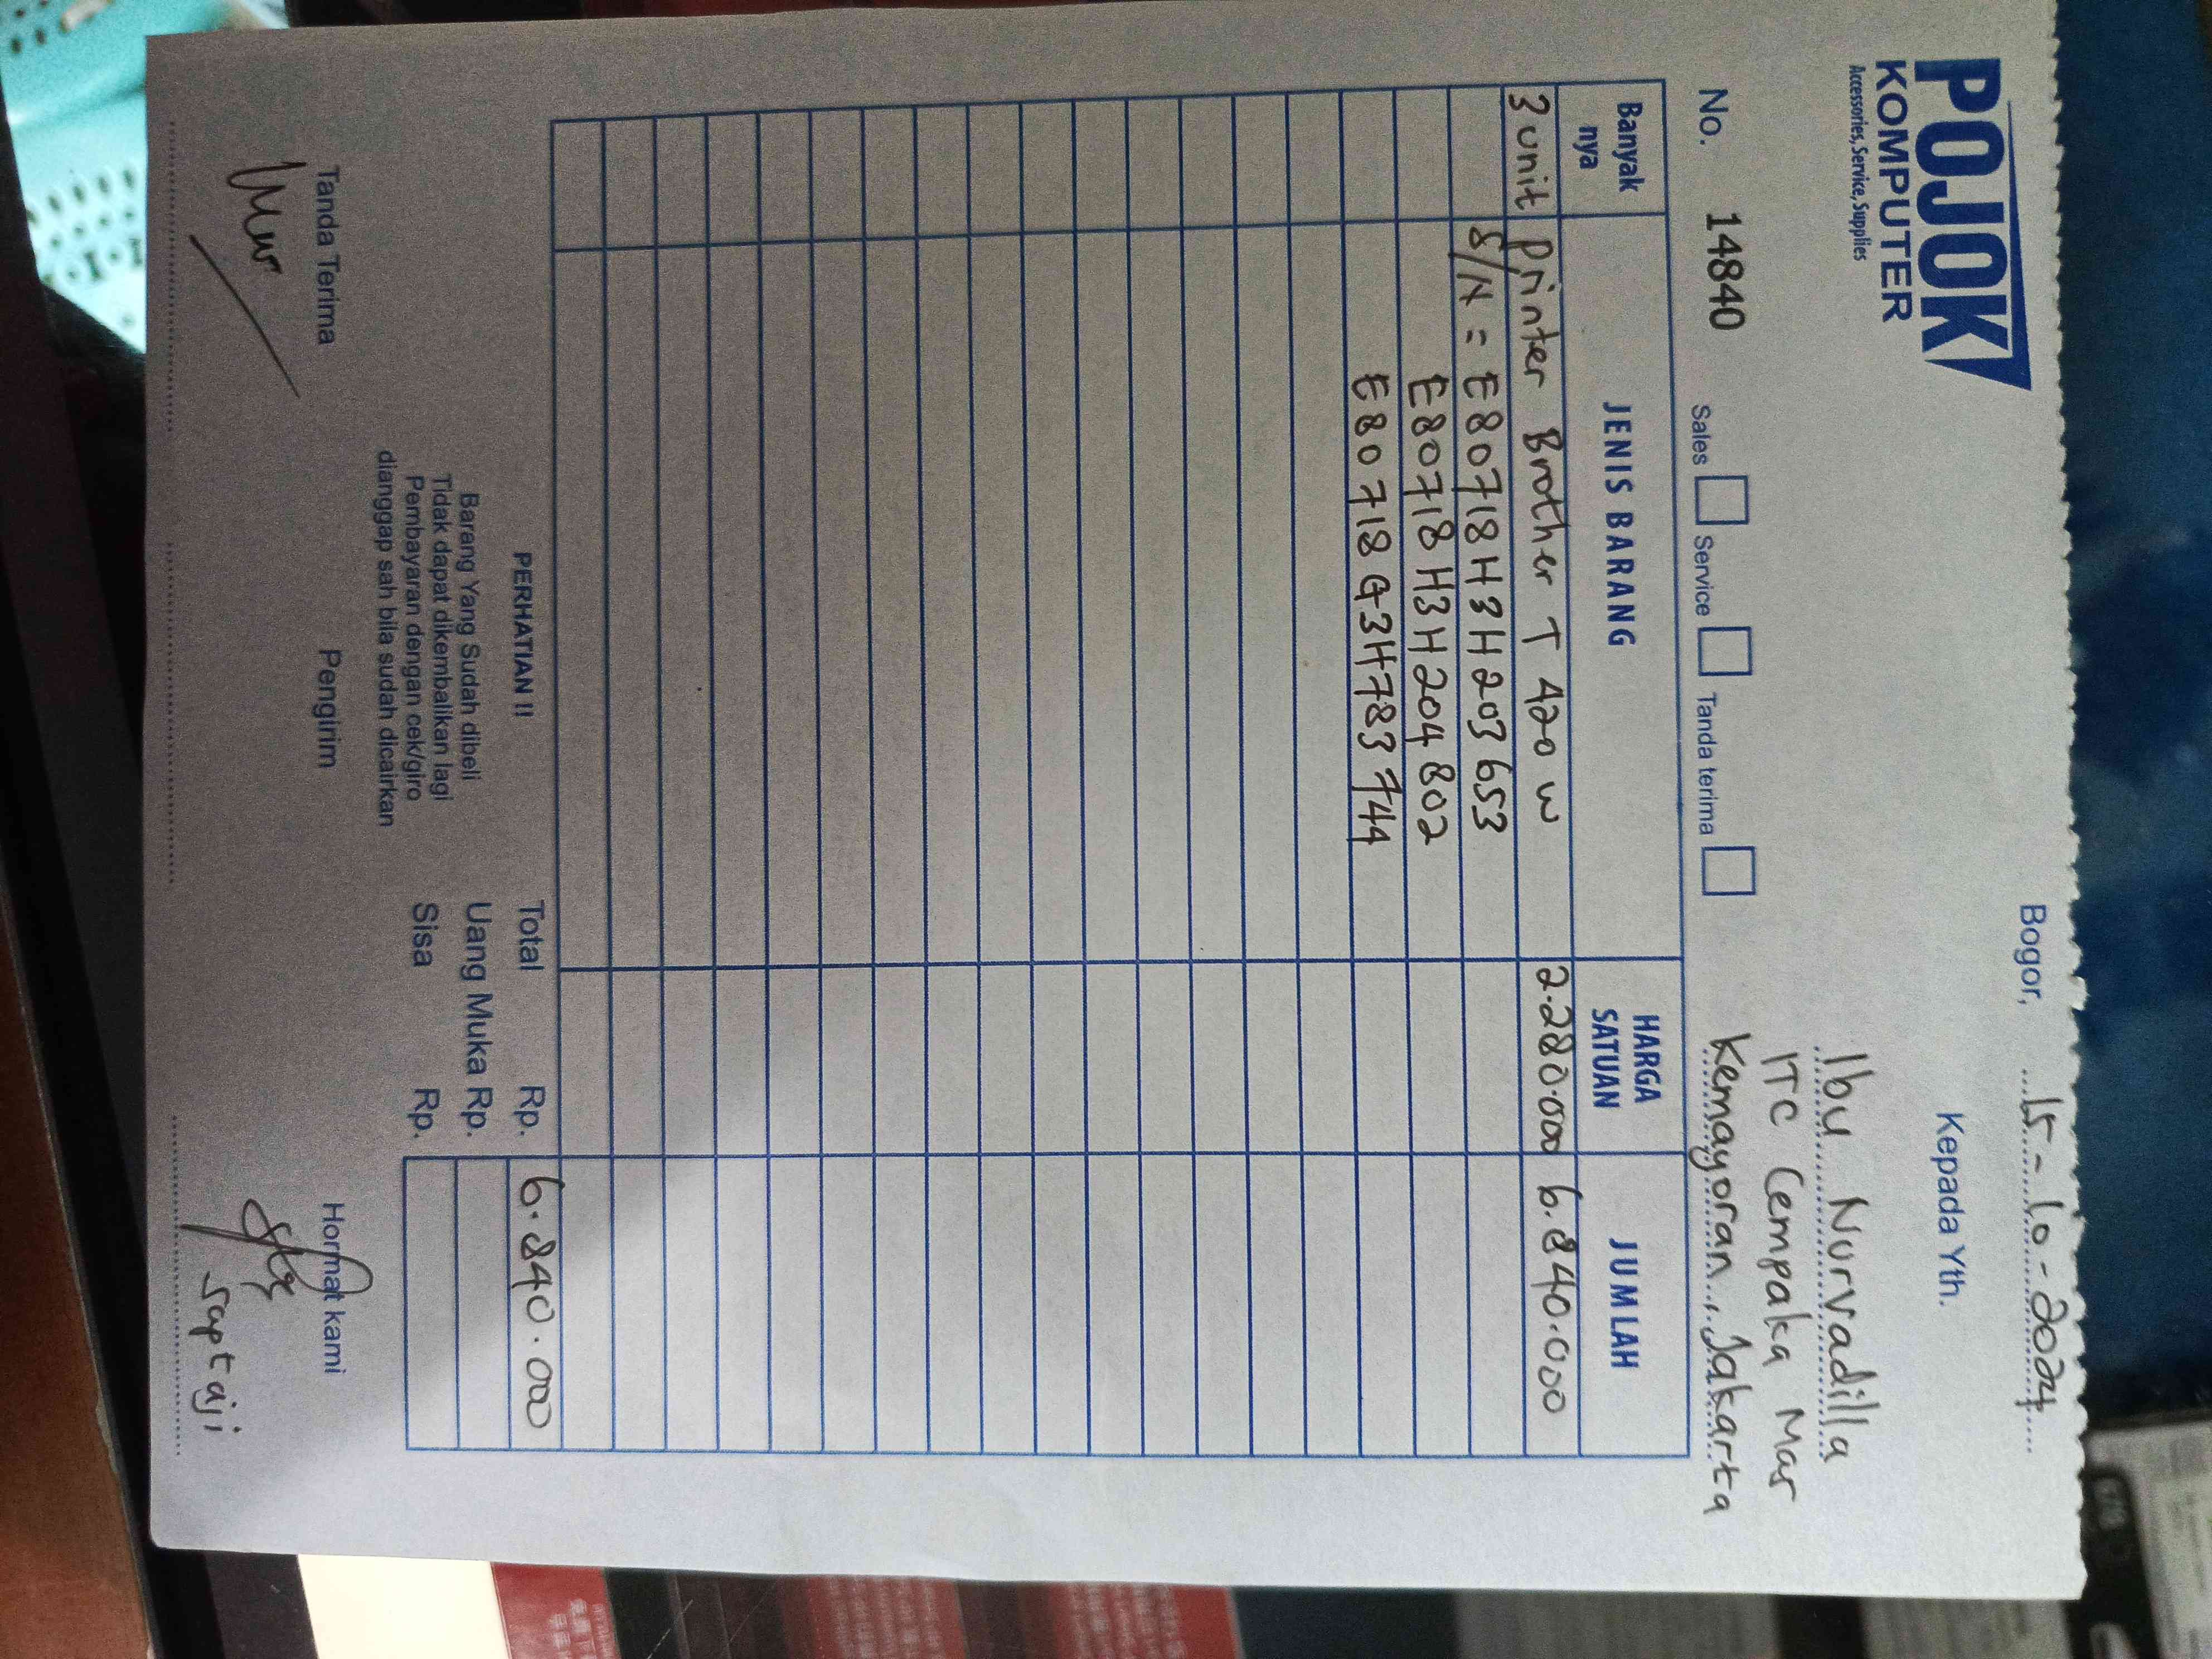 POJOK
KOMPUTER
Accessories, Service, Supplies
Bogor, 15-10-2024
Kepada Yth.
Ibu Nurvadilla
ITC Cempaka Mas
Kemayoran, Jakarta
No. 14840 Sales Service Tanda terima
Banyak nya JENIS BARANG HARGA SATUAN JUMLAH
3 unit Printer Brother T 420 W 2.280.000 6.840.000
S/N = E80718H3H203653
E80718H3H204802
E80718G3H783744
Total Rp. 6.840.000
Uang Muka Rp.
Sisa Rp.
PERHATIAN !!
Barang Yang Sudah dibeli
Tidak dapat dikembalikan lagi
Pembayaran dengan cek/giro
dianggap sah bila sudah dicairkan
Tanda Terima Pengirim Hormat kami
Saptaji